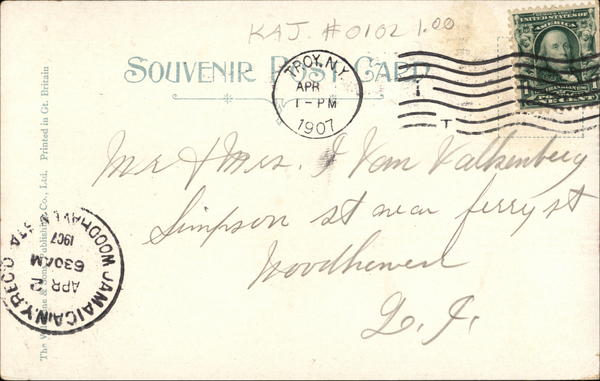 KAJ. #0102 1.00
SOUVENIR POST CARD
TROY, N.Y.
APR
1-PM
1907
T
UNITED STATES OF AMERICA
FRANKLIN
ONE CENT
Mr & Mrs. J Van Valkenberg
Simpson st near ferry st
Woodhaven
L. I.
JAMAICA N.Y. REC'D
APR 2
630AM
1907
WOODHAVEN STA.
The & Sons Publishing Co., Ltd. Printed in Gt. Britain